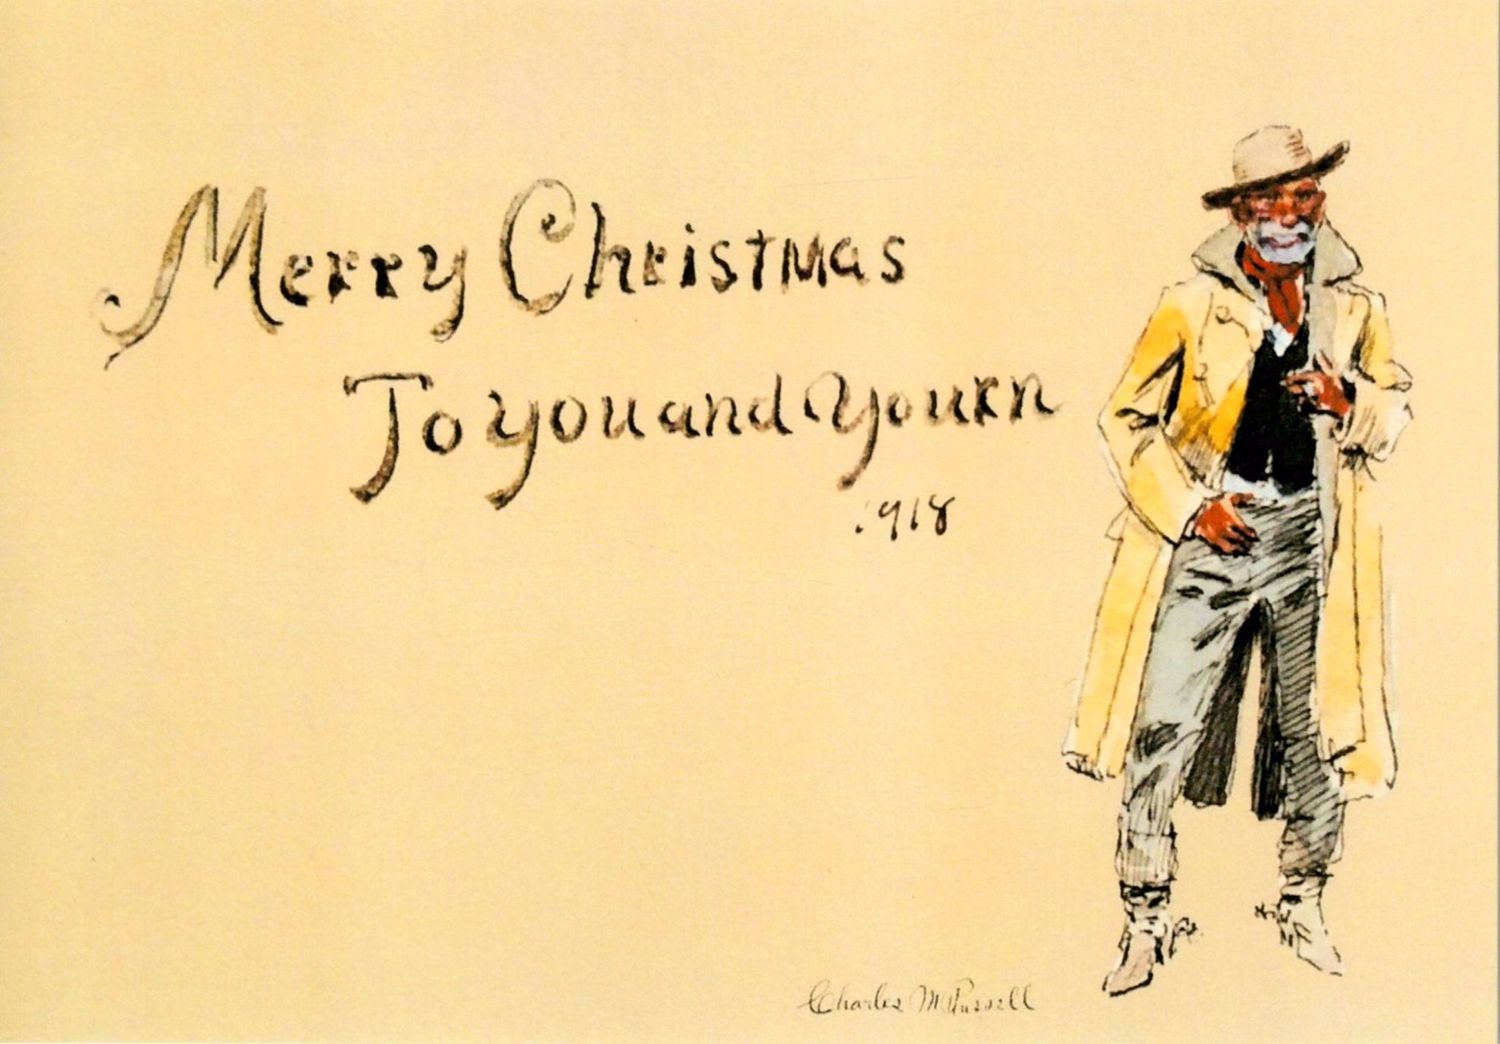 Merry Christmas
To you and yourn
1918
Charles M Russell